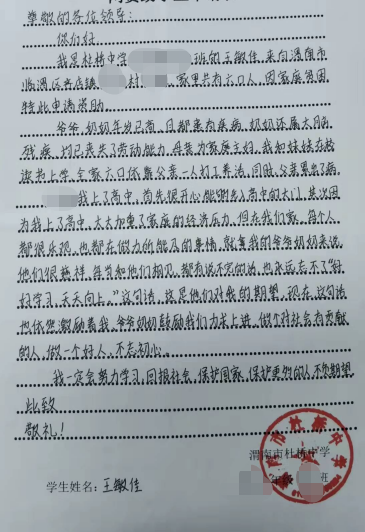 尊敬的各位领导：
你们好
我是杜桥中学 班的王敏佳，来自渭南市
临渭区官店镇 村 家里共有六口人，因家庭贫困
特此申请资助
爷爷、奶奶年岁已高，且都患有疾病，奶奶还属大脑
残疾，均已丧失了劳动能力，母亲为家庭主妇，我和妹妹在校
读书上学，全家六口依靠父亲一人打工养活，同时，父亲累出了病，
我上了高中，首先很开心能够迈入高中的大门，其次因
为我上了高中，大大加重了家庭的经济压力，但在我们家，每个人
都很乐观，也都在做力所能及的事情，就拿我的爷爷奶奶来说
他们很慈祥，每当和他们相见，都有说不完的话，也永远忘不了“好
好学习，天天向上。”这句话，这是他们对我的期望，现在，这句话
也依然激励着我，爷爷奶奶鼓励我们力求上进，做个对社会有贡献
的人，做一个好人，不忘初心。
我一定会努力学习，回报社会，保护国家，保护更多的人，不负期望
此致
敬礼！
渭南市杜桥中学
年级 班
学生姓名：王敏佳